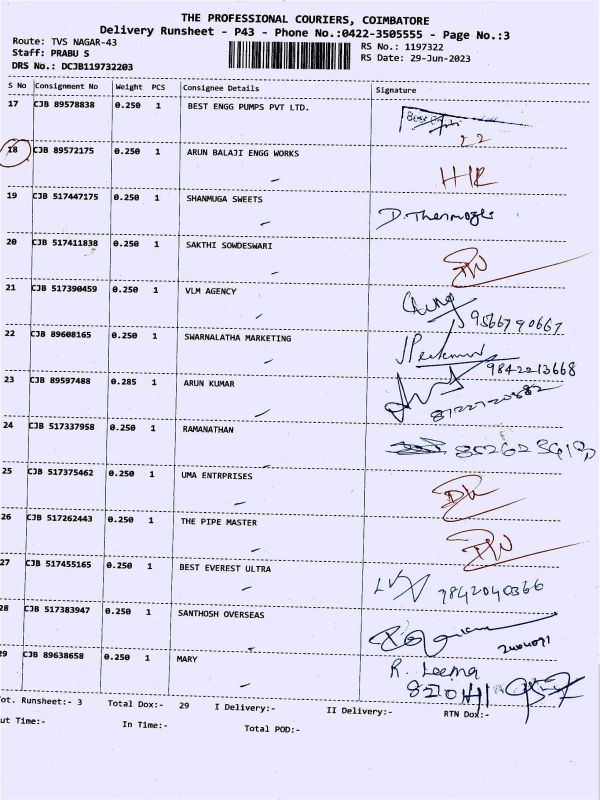 THE PROFESSIONAL COURIERS, COIMBATORE
Delivery Runsheet - P43 - Phone No.:0422-3505555 - Page No.:3
Route: TVS NAGAR-43
Staff: PRABU S
DRS No.: DCJB119732203
RS No.: 1197322
RS Date: 29-Jun-2023
S No Consignment No Weight PCS Consignee Details Signature
17 CJB 89578838 0.250 1 BEST ENGG PUMPS PVT LTD.
22
18 CJB 89572175 0.250 1 ARUN BALAJI ENGG WORKS
19 CJB 517447175 0.250 1 SHANMUGA SWEETS D. Thermogls
20 CJB 517411838 0.250 1 SAKTHI SOWDESWARI
21 CJB 517390459 0.250 1 VLM AGENCY 9566790667
22 CJB 89608165 0.250 1 SWARNALATHA MARKETING 9842213668
23 CJB 89597488 0.285 1 ARUN KUMAR 8122720882
24 CJB 517337958 0.250 1 RAMANATHAN
25 CJB 517375462 0.250 1 UMA ENTRPRISES
26 CJB 517262443 0.250 1 THE PIPE MASTER
27 CJB 517455165 0.250 1 BEST EVEREST ULTRA 9842040366
28 CJB 517383947 0.250 1 SANTHOSH OVERSEAS
29 CJB 89638658 0.250 1 MARY R. Leema
Tot. Runsheet:- 3 Total Dox:- 29 I Delivery:- II Delivery:- RTN Dox:-
Out Time:- In Time:- Total POD:-